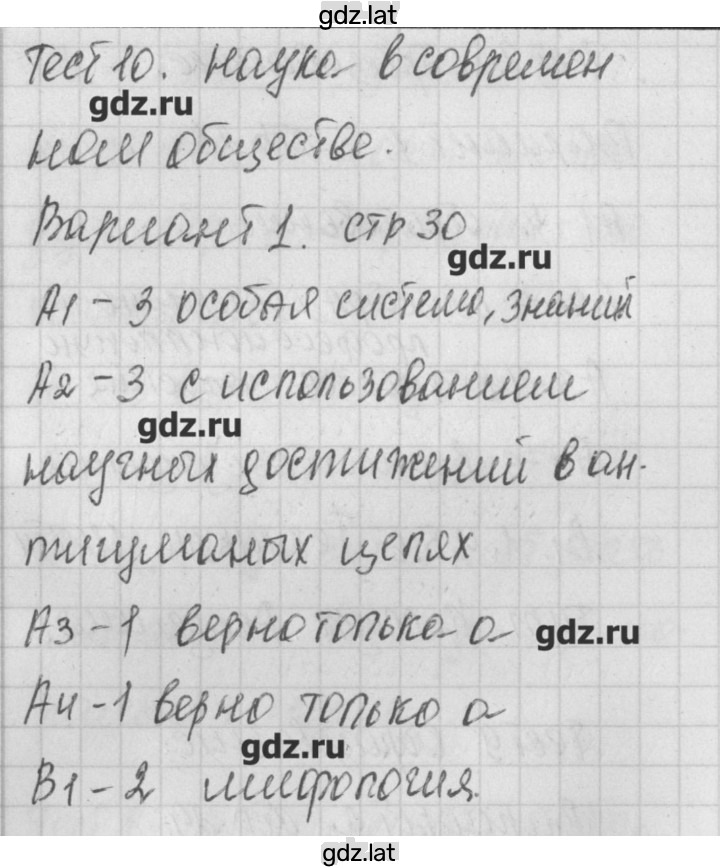 gdz.lat
Тест 10. наука в современ
gdz.ru
ном обществе.
Вариант 1. стр 30
gdz.ru
А1 - 3 особая система, знаний
А2 - 3 с использованием
gdz.ru
научных достижений в ан-
тигуманых целях
А3 - 1 верно только а
gdz.ru
А4 - 1 верно только а
gdz.ru
В1 - 2 мифология.
gdz.lat